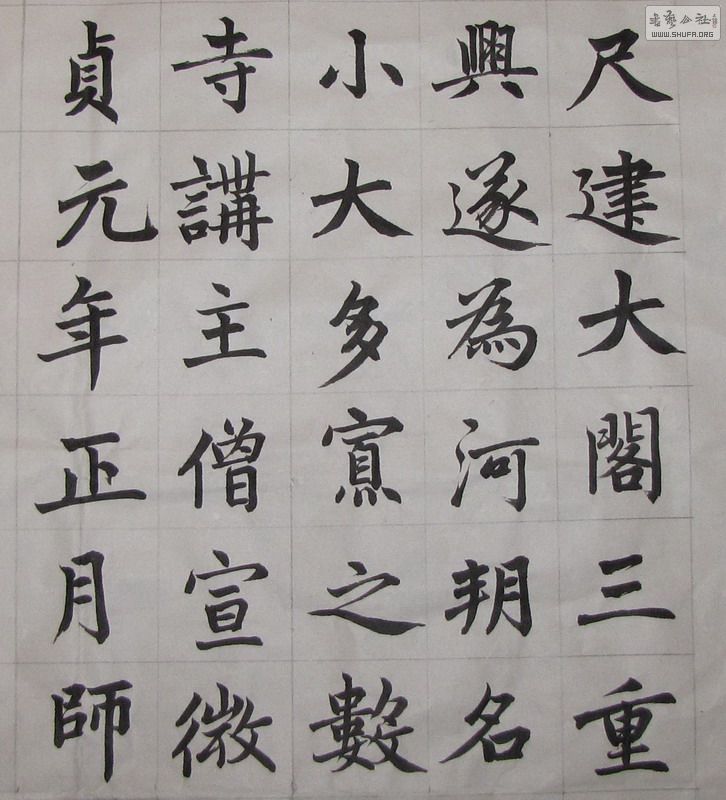 尺建大閣三重
興遂為河朔名
小大多寡之數
寺講主僧宣微
貞元年正月師
書藝公社
WWW.SHUFA.ORG